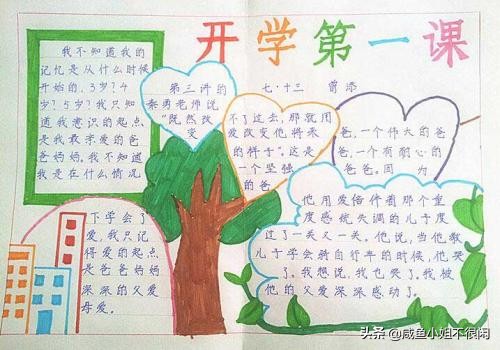 开学第一课
七·十三 曾添
我不知道我的
记忆是从什么时候
开始的，3岁？4
岁？5岁？我只知
道我意识的起点
是我最亲爱的爸
爸妈妈，我不知道
我是在什么情况
下学会了
爱，我只记
得爱的起点
是爸爸妈妈
深深的父爱
母爱。
第三讲的
秦勇老师说
“既然改
变
不了过去，那就用
爱改变他将来
的样子”。这是
一个坚强
的爸
爸，一个伟大的爸
爸，一个有耐心的
爸爸。因为
他用爱陪伴着那个重
度感统失调的儿子度
过了一关又一关。他说，当他教
儿子学会骑自行车的时候，他哭
了。我想说，我也哭了。我被
他的父爱深深感动了。
头条 @咸鱼小姐不很闲